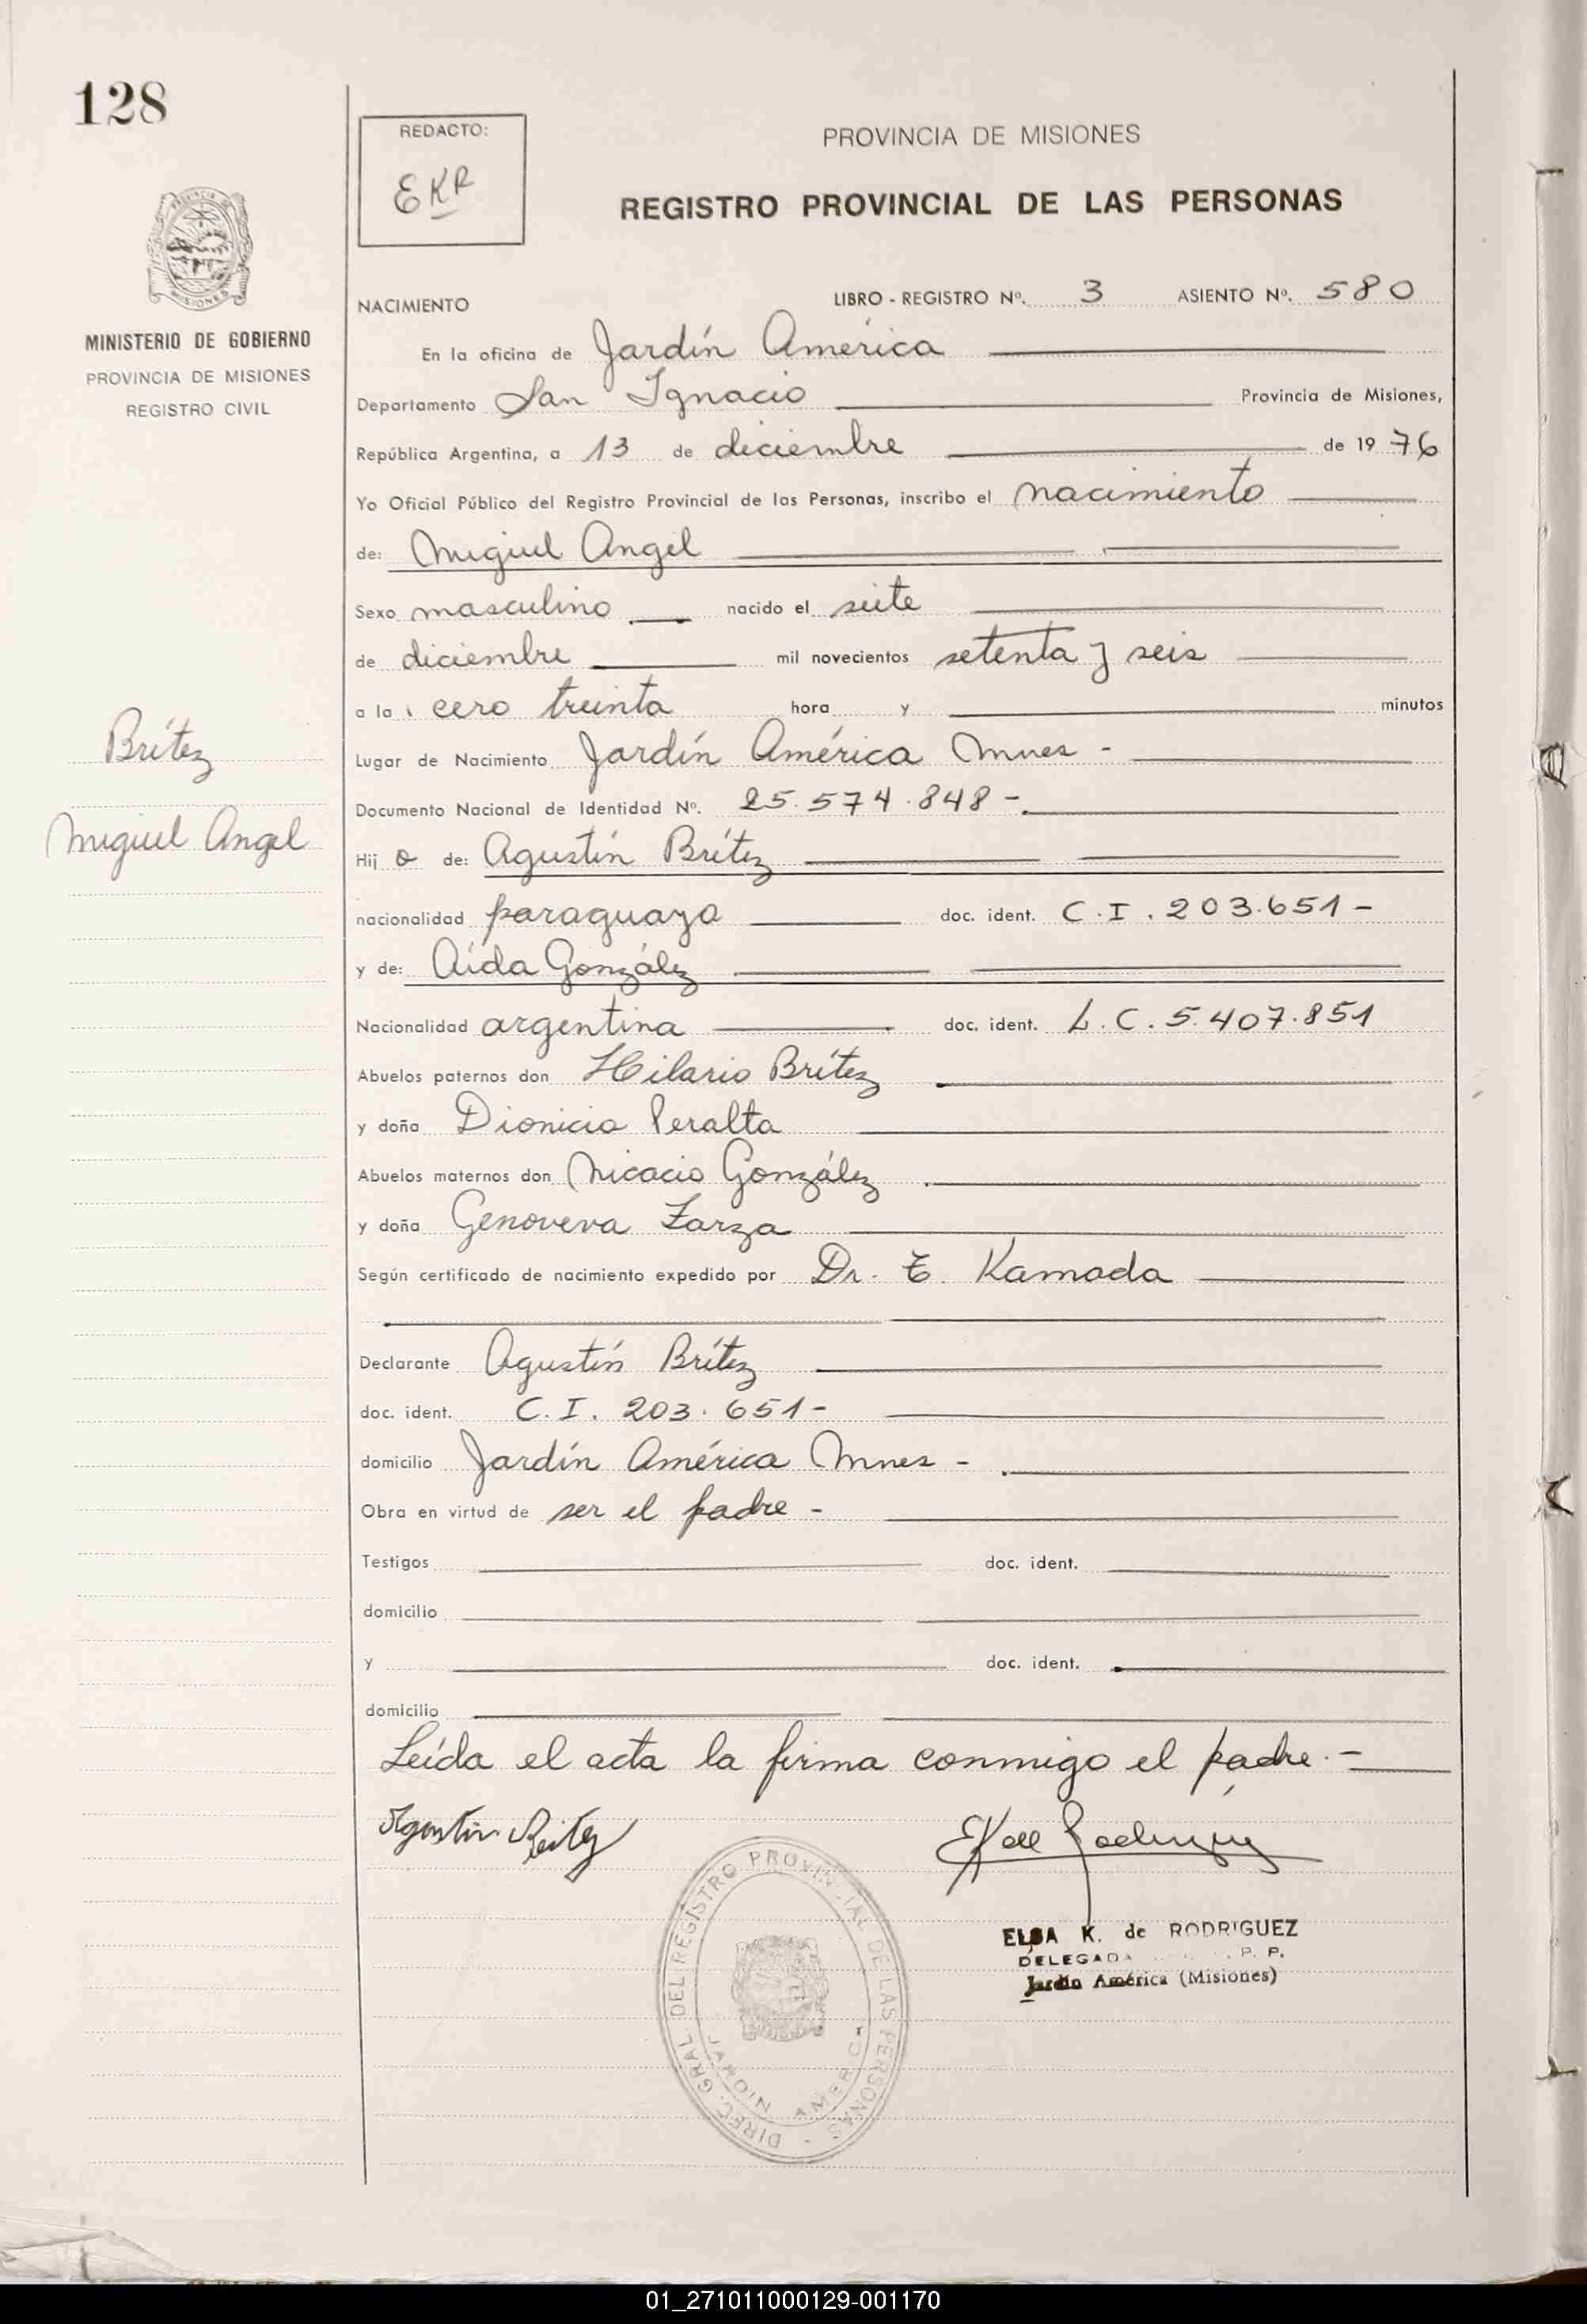 128
REDACTO:
EKR
PROVINCIA DE MISIONES
REGISTRO PROVINCIAL DE LAS PERSONAS
MISIONES
MINISTERIO DE GOBIERNO
PROVINCIA DE MISIONES
REGISTRO CIVIL
NACIMIENTO LIBRO - REGISTRO Nº. 3 ASIENTO Nº. 580
En la oficina de Jardín América
Departamento San Ignacio Provincia de Misiones,
República Argentina, a 13 de diciembre de 1976
Yo Oficial Público del Registro Provincial de las Personas, inscribo el nacimiento
de: Miguel Angel
Sexo masculino nacido el siete
de diciembre mil novecientos setenta y seis
a la cero treinta hora y minutos
Lugar de Nacimiento Jardín América Mnes -
Documento Nacional de Identidad Nº. 25.574.848 -
Hijo de: Agustín Brítez
nacionalidad paraguaya doc. ident. C.I. 203.651 -
y de: Aída González
Nacionalidad argentina doc. ident. L.C. 5.407.851
Abuelos paternos don Hilario Brítez
y doña Dionicia Peralta
Abuelos maternos don Nicacio González
y doña Genoveva Zarza
Según certificado de nacimiento expedido por Dr. T. Kamada
Declarante Agustín Brítez
doc. ident. C.I. 203.651 -
domicilio Jardín América Mnes -
Obra en virtud de ser el padre -
Testigos doc. ident.
domicilio
y doc. ident.
domicilio
Leída el acta la firma conmigo el padre. -
Brítez
Miguel Angel
Agustin Britez
DIREC. GRAL. DEL REGISTRO PROVINCIAL DE LAS PERSONAS
JARDIN AMERICA
ELBA K. de RODRIGUEZ
DELEGADA P. P.
Jardín América (Misiones)
01_271011000129-001170